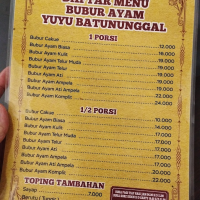 DAFTAR MENU
BUBUR AYAM
YUYU BATUNUNGGAL
1 PORSI
Bubur Cakue
Bubur Ayam Biasa 12.000
Bubur Ayam Kulit 14.000
Bubur Ayam Telur Muda 19.000
Bubur Ayam Telur 19.000
Bubur Ayam Ati 19.000
Bubur Ayam Ampela 19.000
Bubur Ayam Ati Ampela 19.000
Bubur Ayam Komplit 22.000
24.000
1/2 PORSI
Bubur Cakue
Bubur Ayam Biasa 10.000
Bubur Ayam Kulit 14.000
Bubur Ayam Telur Muda 17.000
Bubur Ayam Telur 17.000
Bubur Ayam Ati 17.000
Bubur Ayam Ampela 17.000
Bubur Ayam Ati Ampela 17.000
Bubur Ayam Komplit 20.000
22.000
TOPING TAMBAHAN
Sayap 7.000